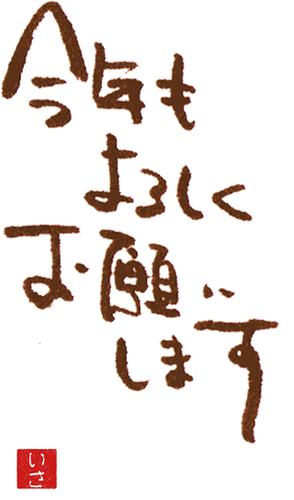 今年も
よろしく
お願い
します
いさ